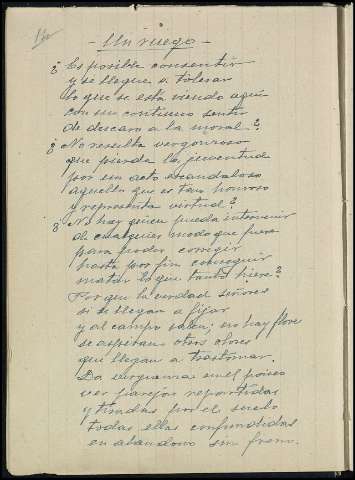 - Un ruego -
¿ Es posible consentir
y se llegue a tolerar
lo que se está viendo aquí
con un continuo sentir
de descaro a la moral?
¿ No resulta vergonzoso
que pierda la juventud
por un acto escandaloso
aquello que es tan honroso
y representa virtud?
¿ No hay quien pueda intervenir
de cualquier modo que fuera
para poder corregir
hasta por fin conseguir
matar lo que tanto hiere?
Por que la verdad señores
si se llegan a fijar
y al campo salen, no hay flores
se aspiran otros olores
que llegan a trastornar.
Da verguenza en el paseo
ver parejas repartidas
y tiradas por el suelo
todas ellas confundidas
en abandono sin freno.